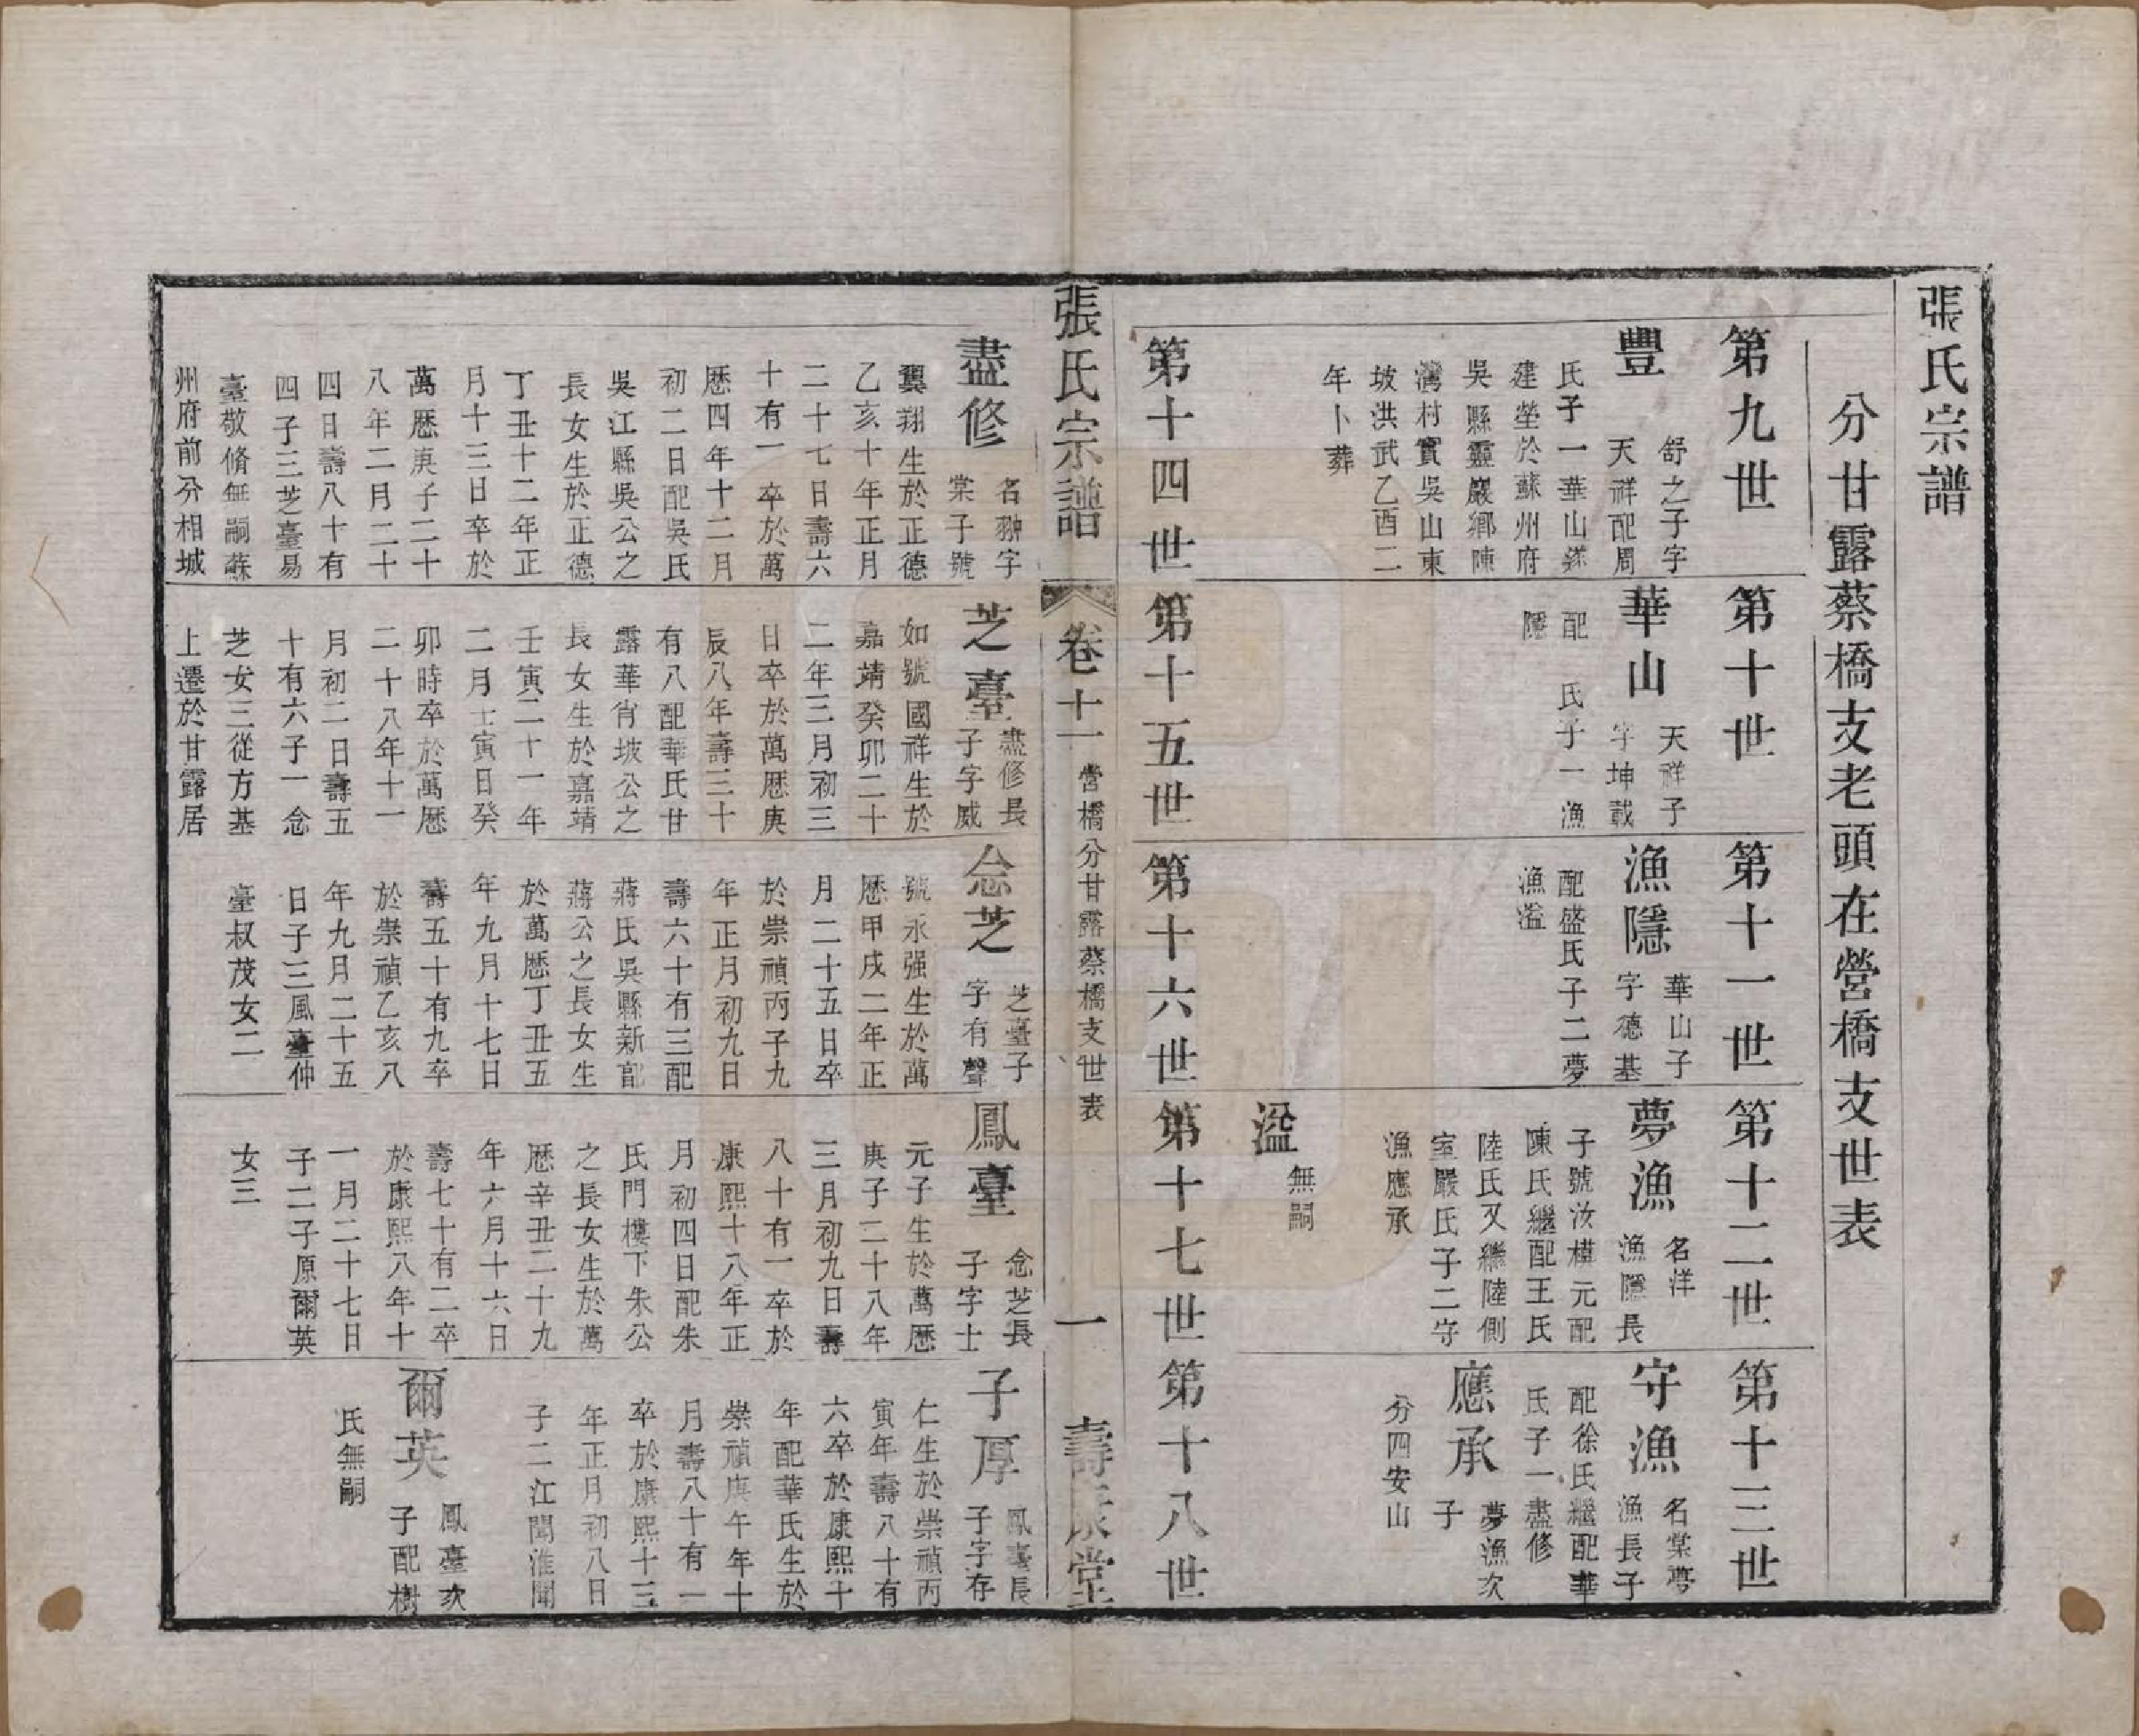 張氏宗譜
分甘露蔡橋支老頭在營橋支世表
第九世
豐
舒之子字
天祥配周
氏子一華山遂
建塋於蘇州府
吳縣靈巖鄉陳
灣村實吳山東
坡洪武乙酉二
年卜葬
第十世
華山
天祥子
字坤載
配 氏子一漁
隱
第十一世
漁隱
華山子
字德基
配盛氏子二夢
漁溢
第十二世
夢漁
名洋
漁隱長
子號汝模元配
陳氏繼配王氏
陸氏又繼陸側
室嚴氏子二守
漁應承
溢
無嗣
第十三世
守漁
名棠夢
漁長子
配徐氏繼配華
氏子一盡修
應承
夢漁次
子
分四安山
第十四世
第十五世
第十六世
第十七世
第十八世
張氏宗譜
卷十一
營橋分甘露蔡橋支世表
一
壽康堂
盡修
名翀字
棠子號
翼翔生於正德
乙亥十年正月
二十七日壽六
十有一 卒於萬
歷四年十二月
初二日配吳氏
吳江縣吳公之
長女生於正德
丁丑十二年正
月十三日卒於
萬歷庚子二十
八年二月二十
四日壽八十有
四子三芝臺易
臺敬脩無嗣蘇
州府前分相城
芝臺
盡修長
子字威
如號國祥生於
嘉靖癸卯二十
二年三月初三
日卒於萬歷庚
辰八年壽三十
有八配華氏甘
露華肖坡公之
長女生於嘉靖
壬寅二十一年
二月壬寅日癸
卯時卒於萬歷
二十八年十一
月初二日壽五
十有六子一念
芝女三從方基
上遷於甘露居
念芝
芝臺子
字有聲
號永强生於萬
歷甲戌二年正
月二十五日卒
於崇禎丙子九
年正月初九日
壽六十有三配
蔣氏吳縣新郭
蔣公之長女生
於萬歷丁丑五
年九月十七日
壽五十有九卒
於崇禎乙亥八
年九月二十五
日子三鳳臺仲
臺叔茂女二
鳳臺
念芝長
子字士
元子生於萬歷
庚子二十八年
三月初九日壽
八十有一卒於
康熙十八年正
月初四日配朱
氏門樓下朱公
之長女生於萬
歷辛丑二十九
年六月十六日
壽七十有二卒
於康熙八年十
一月二十七日
子二子原爾英
女三
子厚
鳳臺長
子字存
仁生於崇禎丙
寅年壽八十有
六卒於康熙十
年配華氏生於
崇禎庚午年十
月壽八十有一
卒於康熙十三
年正月初八日
子二江聞淮聞
爾英
鳳臺次
子配樹
氏無嗣